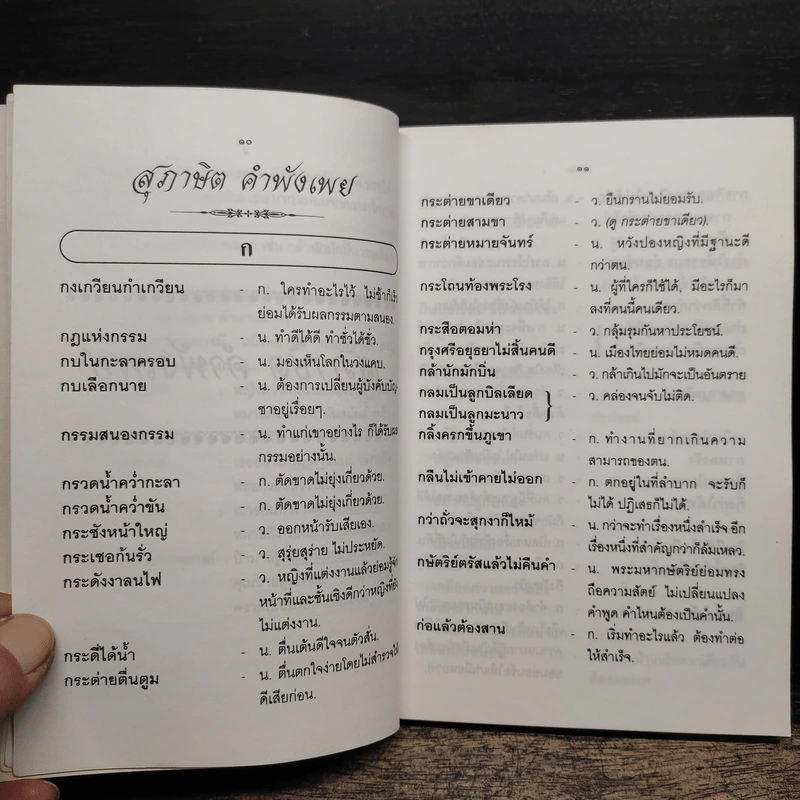 ๑๐
สุภาษิต คำพังเพย
ก
กงเกวียนกำเกวียน - ก. ใครทำอะไรไว้ ไม่ช้าก็เร็ว
ย่อมได้รับผลกรรมตามสนอง.
กฎแห่งกรรม - น. ทำดีได้ดี ทำชั่วได้ชั่ว.
กบในกะลาครอบ - น. มองเห็นโลกในวงแคบ.
กบเลือกนาย - น. ต้องการเปลี่ยนผู้บังคับบัญ-
ชาอยู่เรื่อยๆ.
กรรมสนองกรรม - น. ทำแก่เขาอย่างไร ก็ได้รับผล
กรรมอย่างนั้น.
กรวดน้ำคว่ำกะลา - ก. ตัดขาดไม่ยุ่งเกี่ยวด้วย.
กรวดน้ำคว่ำขัน - ก. ตัดขาดไม่ยุ่งเกี่ยวด้วย.
กระชังหน้าใหญ่ - ว. ออกหน้ารับเสียเอง.
กระเชอก้นรั่ว - ว. สุรุ่ยสุร่าย ไม่ประหยัด.
กระดังงาลนไฟ - ว. หญิงที่แต่งงานแล้วย่อมรู้จัก
หน้าที่และชั้นเชิงดีกว่าหญิงที่ยัง
ไม่แต่งงาน.
กระดี่ได้น้ำ - น. ตื่นเต้นดีใจจนตัวสั่น.
กระต่ายตื่นตูม - น. ตื่นตกใจง่ายโดยไม่สำรวจให้
ดีเสียก่อน.
๑๑
กระต่ายขาเดียว - ว. ยืนกรานไม่ยอมรับ.
กระต่ายสามขา - ว. (ดู กระต่ายขาเดียว).
กระต่ายหมายจันทร์ - น. หวังปองหญิงที่มีฐานะดี
กว่าตน.
กระโถนท้องพระโรง - น. ผู้ที่ใครก็ใช้ได้, มีอะไรก็มา
ลงที่คนนี้คนเดียว.
กระสือตอมห่า - ว. กลุ้มรุมกันหาประโยชน์.
กรุงศรีอยุธยาไม่สิ้นคนดี - น. เมืองไทยย่อมไม่หมดคนดี.
กล้านักมักบิ่น - ว. กล้าเกินไปมักจะเป็นอันตราย
กลมเป็นลูกบิลเลียด } - ว. คล่องจนจับไม่ติด.
กลมเป็นลูกมะนาว
กลิ้งครกขึ้นภูเขา - ก. ทำงานที่ยากเกินความ
สามารถของตน.
กลืนไม่เข้าคายไม่ออก - ก. ตกอยู่ในที่ลำบาก จะรับก็
ไม่ได้ ปฏิเสธก็ไม่ได้.
กว่าถั่วจะสุกงาก็ไหม้ - น. กว่าจะทำเรื่องหนึ่งสำเร็จ อีก
เรื่องหนึ่งที่สำคัญกว่าก็ล้มเหลว.
กษัตริย์ตรัสแล้วไม่คืนคำ - น. พระมหากษัตริย์ย่อมทรง
ถือความสัตย์ ไม่เปลี่ยนแปลง
คำพูด คำไหนต้องเป็นคำนั้น.
ก่อแล้วต้องสาน - ก. เริ่มทำอะไรแล้ว ต้องทำต่อ
ให้สำเร็จ.